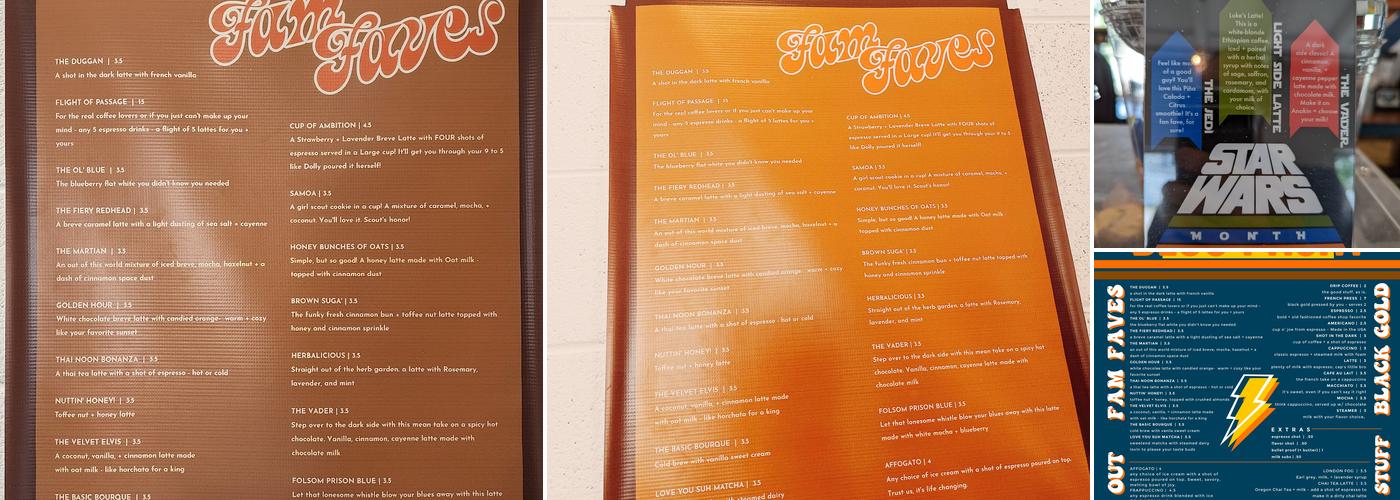 Fam
Faves
THE DUGGAN | 3.5
A shot in the dark latte with french vanilla
FLIGHT OF PASSAGE | 15
For the real coffee lovers or if you just can't make up your
mind - any 5 espresso drinks - a flight of 5 lattes for you +
yours
THE OL' BLUE | 3.5
The blueberry flat white you didn't know you needed
THE FIERY REDHEAD | 3.5
A breve caramel latte with a light dusting of sea salt + cayenne
THE MARTIAN | 3.5
An out of this world mixture of iced breve, mocha, hazelnut + a
dash of cinnamon space dust
GOLDEN HOUR | 3.5
White chocolate breve latte with candied orange- warm + cozy
like your favorite sunset
THAI NOON BONANZA | 3.5
A thai tea latte with a shot of espresso - hot or cold
NUTTIN' HONEY! | 3.5
Toffee nut + honey latte
THE VELVET ELVIS | 3.5
A coconut, vanilla, + cinnamon latte made
with oat milk - like horchata for a king
THE BASIC BOURQUE | 3.5
CUP OF AMBITION | 4.5
A Strawberry + Lavender Breve Latte with FOUR shots of
espresso served in a Large cup! It'll get you through your 9 to 5
like Dolly poured it herself!
SAMOA | 3.5
A girl scout cookie in a cup! A mixture of caramel, mocha, +
coconut. You'll love it. Scout's honor!
HONEY BUNCHES OF OATS | 3.5
Simple, but so good! A honey latte made with Oat milk -
topped with cinnamon dust
BROWN SUGA' | 3.5
The funky fresh cinnamon bun + toffee nut latte topped with
honey and cinnamon sprinkle
HERBALICIOUS | 3.5
Straight out of the herb garden, a latte with Rosemary,
lavender, and mint
THE VADER | 3.5
Step over to the dark side with this mean take on a spicy hot
chocolate. Vanilla, cinnamon, cayenne latte made with
chocolate milk
FOLSOM PRISON BLUE | 3.5
Let that lonesome whistle blow your blues away with this latte
Fam
Faves
THE DUGGAN | 3.5
A shot in the dark latte with french vanilla
FLIGHT OF PASSAGE | 15
For the real coffee lovers or if you just can't make up your
mind - any 5 espresso drinks - a flight of 5 lattes for you +
yours
THE OL' BLUE | 3.5
The blueberry flat white you didn't know you needed
THE FIERY REDHEAD | 3.5
A breve caramel latte with a light dusting of sea salt + cayenne
THE MARTIAN | 3.5
An out of this world mixture of iced breve, mocha, hazelnut + a
dash of cinnamon space dust
GOLDEN HOUR | 3.5
White chocolate breve latte with candied orange- warm + cozy
like your favorite sunset
THAI NOON BONANZA | 3.5
A thai tea latte with a shot of espresso - hot or cold
NUTTIN' HONEY! | 3.5
Toffee nut + honey latte
THE VELVET ELVIS | 3.5
A coconut, vanilla, + cinnamon latte made
with oat milk - like horchata for a king
THE BASIC BOURQUE | 3.5
Cold brew with vanilla sweet cream
LOVE YOU SUH MATCHA | 3.5
CUP OF AMBITION | 4.5
A Strawberry + Lavender Breve Latte with FOUR shots of
espresso served in a Large cup! It'll get you through your 9 to 5
like Dolly poured it herself!
SAMOA | 3.5
A girl scout cookie in a cup! A mixture of caramel, mocha, +
coconut. You'll love it. Scout's honor!
HONEY BUNCHES OF OATS | 3.5
Simple, but so good! A honey latte made with Oat milk -
topped with cinnamon dust
BROWN SUGA' | 3.5
The funky fresh cinnamon bun + toffee nut latte topped with
honey and cinnamon sprinkle
HERBALICIOUS | 3.5
Straight out of the herb garden, a latte with Rosemary,
lavender, and mint
THE VADER | 3.5
Step over to the dark side with this mean take on a spicy hot
chocolate. Vanilla, cinnamon, cayenne latte made with
chocolate milk
FOLSOM PRISON BLUE | 3.5
Let that lonesome whistle blow your blues away with this latte
made with white mocha + blueberry
AFFOGATO | 4
Any choice of ice cream with a shot of espresso poured on top.
Trust us, it's life changing.
Feel like me
of a good
guy? You'll
love this Piña
Colada +
Citrus
smoothie! It's a
fan fave, for
sure!
THE JEDI
Luke's Latte!
This is a
white-blonde
Ethiopian coffee,
iced + paired
with a herbal
syrup with notes
of sage, saffron,
rosemary, and
cardamom, with
your milk of
choice.
LIGHT SIDE LATTE
A dark
side classic! A
cinnamon,
vanilla, +
cayenne pepper
latte made with
chocolate milk.
Make it an
Anakin + choose
your milk!
THE VADER
STAR
WARS
MONTH
FAM FAVES
OUT
BLACK GOLD
STUFF
THE DUGGAN | 3.5
a shot in the dark latte with french vanilla
FLIGHT OF PASSAGE | 15
for the real coffee lovers or if you just can't make up your mind -
any 5 espresso drinks - a flight of 5 lattes for you + yours
THE OL' BLUE | 3.5
the blueberry flat white you didn't know you needed
THE FIERY REDHEAD | 3.5
a breve caramel latte with a light dusting of sea salt + cayenne
THE MARTIAN | 3.5
an out of this world mixture of iced breve, mocha, hazelnut + a
dash of cinnamon space dust
GOLDEN HOUR | 3.5
white chocolate breve latte with candied orange- warm + cozy like your
favorite sunset
THAI NOON BONANZA | 3.5
a thai tea latte with a shot of espresso - hot or cold
NUTTIN' HONEY | 3.5
toffee nut + honey, topped with crushed almonds
THE VELVET ELVIS | 3.5
a coconut, vanilla, + cinnamon latte made
with oat milk - like horchata for a king
THE BASIC BOURQUE | 3.5
cold brew with vanilla sweet cream
LOVE YOU SUH MATCHA | 3.5
sweetend matcha with steamed dairy
lovin to please your taste buds
DRIP COFFEE | 2
the good stuff, as is.
FRENCH PRESS | 7
black gold pressed by you - serves 2
ESPRESSO | 2.5
bold + old fashioned coffee shop favorite
AMERICANO | 2.5
cup o' joe from espresso - Made in the USA
SHOT IN THE DARK | 3
cup of coffee + a shot of espresso
CAPPUCCINO | 3
classic espresso + steamed milk with foam
LATTE | 3
plenty of milk with espresso, cap's little bro
CAFE AU LAIT | 3
the french take on a cappuccino
MACCHIATO | 3.5
it's sweet, even if you can't say it right
MOCHA | 3.5
think cappuccino, served up w/ chocolate
STEAMER | 3
milk with your flavor choice,
EXTRAS
espresso shot | .50
flavor shot | .50
bullet proof (+ butter) | 1
milk subs | .50
AFFOGATO | 4
any choice of ice cream with a
shot of espresso poured on top. Sweet, savory,
melting bowl of joy.
FRAPPUCCINO | 4.5
any espresso drink blended with ice
LONDON FOG | 3.5
Earl grey, milk, + lavender syrup
CHAI TEA LATTE | 3.5
Oregon Chai Tea + milk - add a shot of espresso to
make it a dirty chai latte